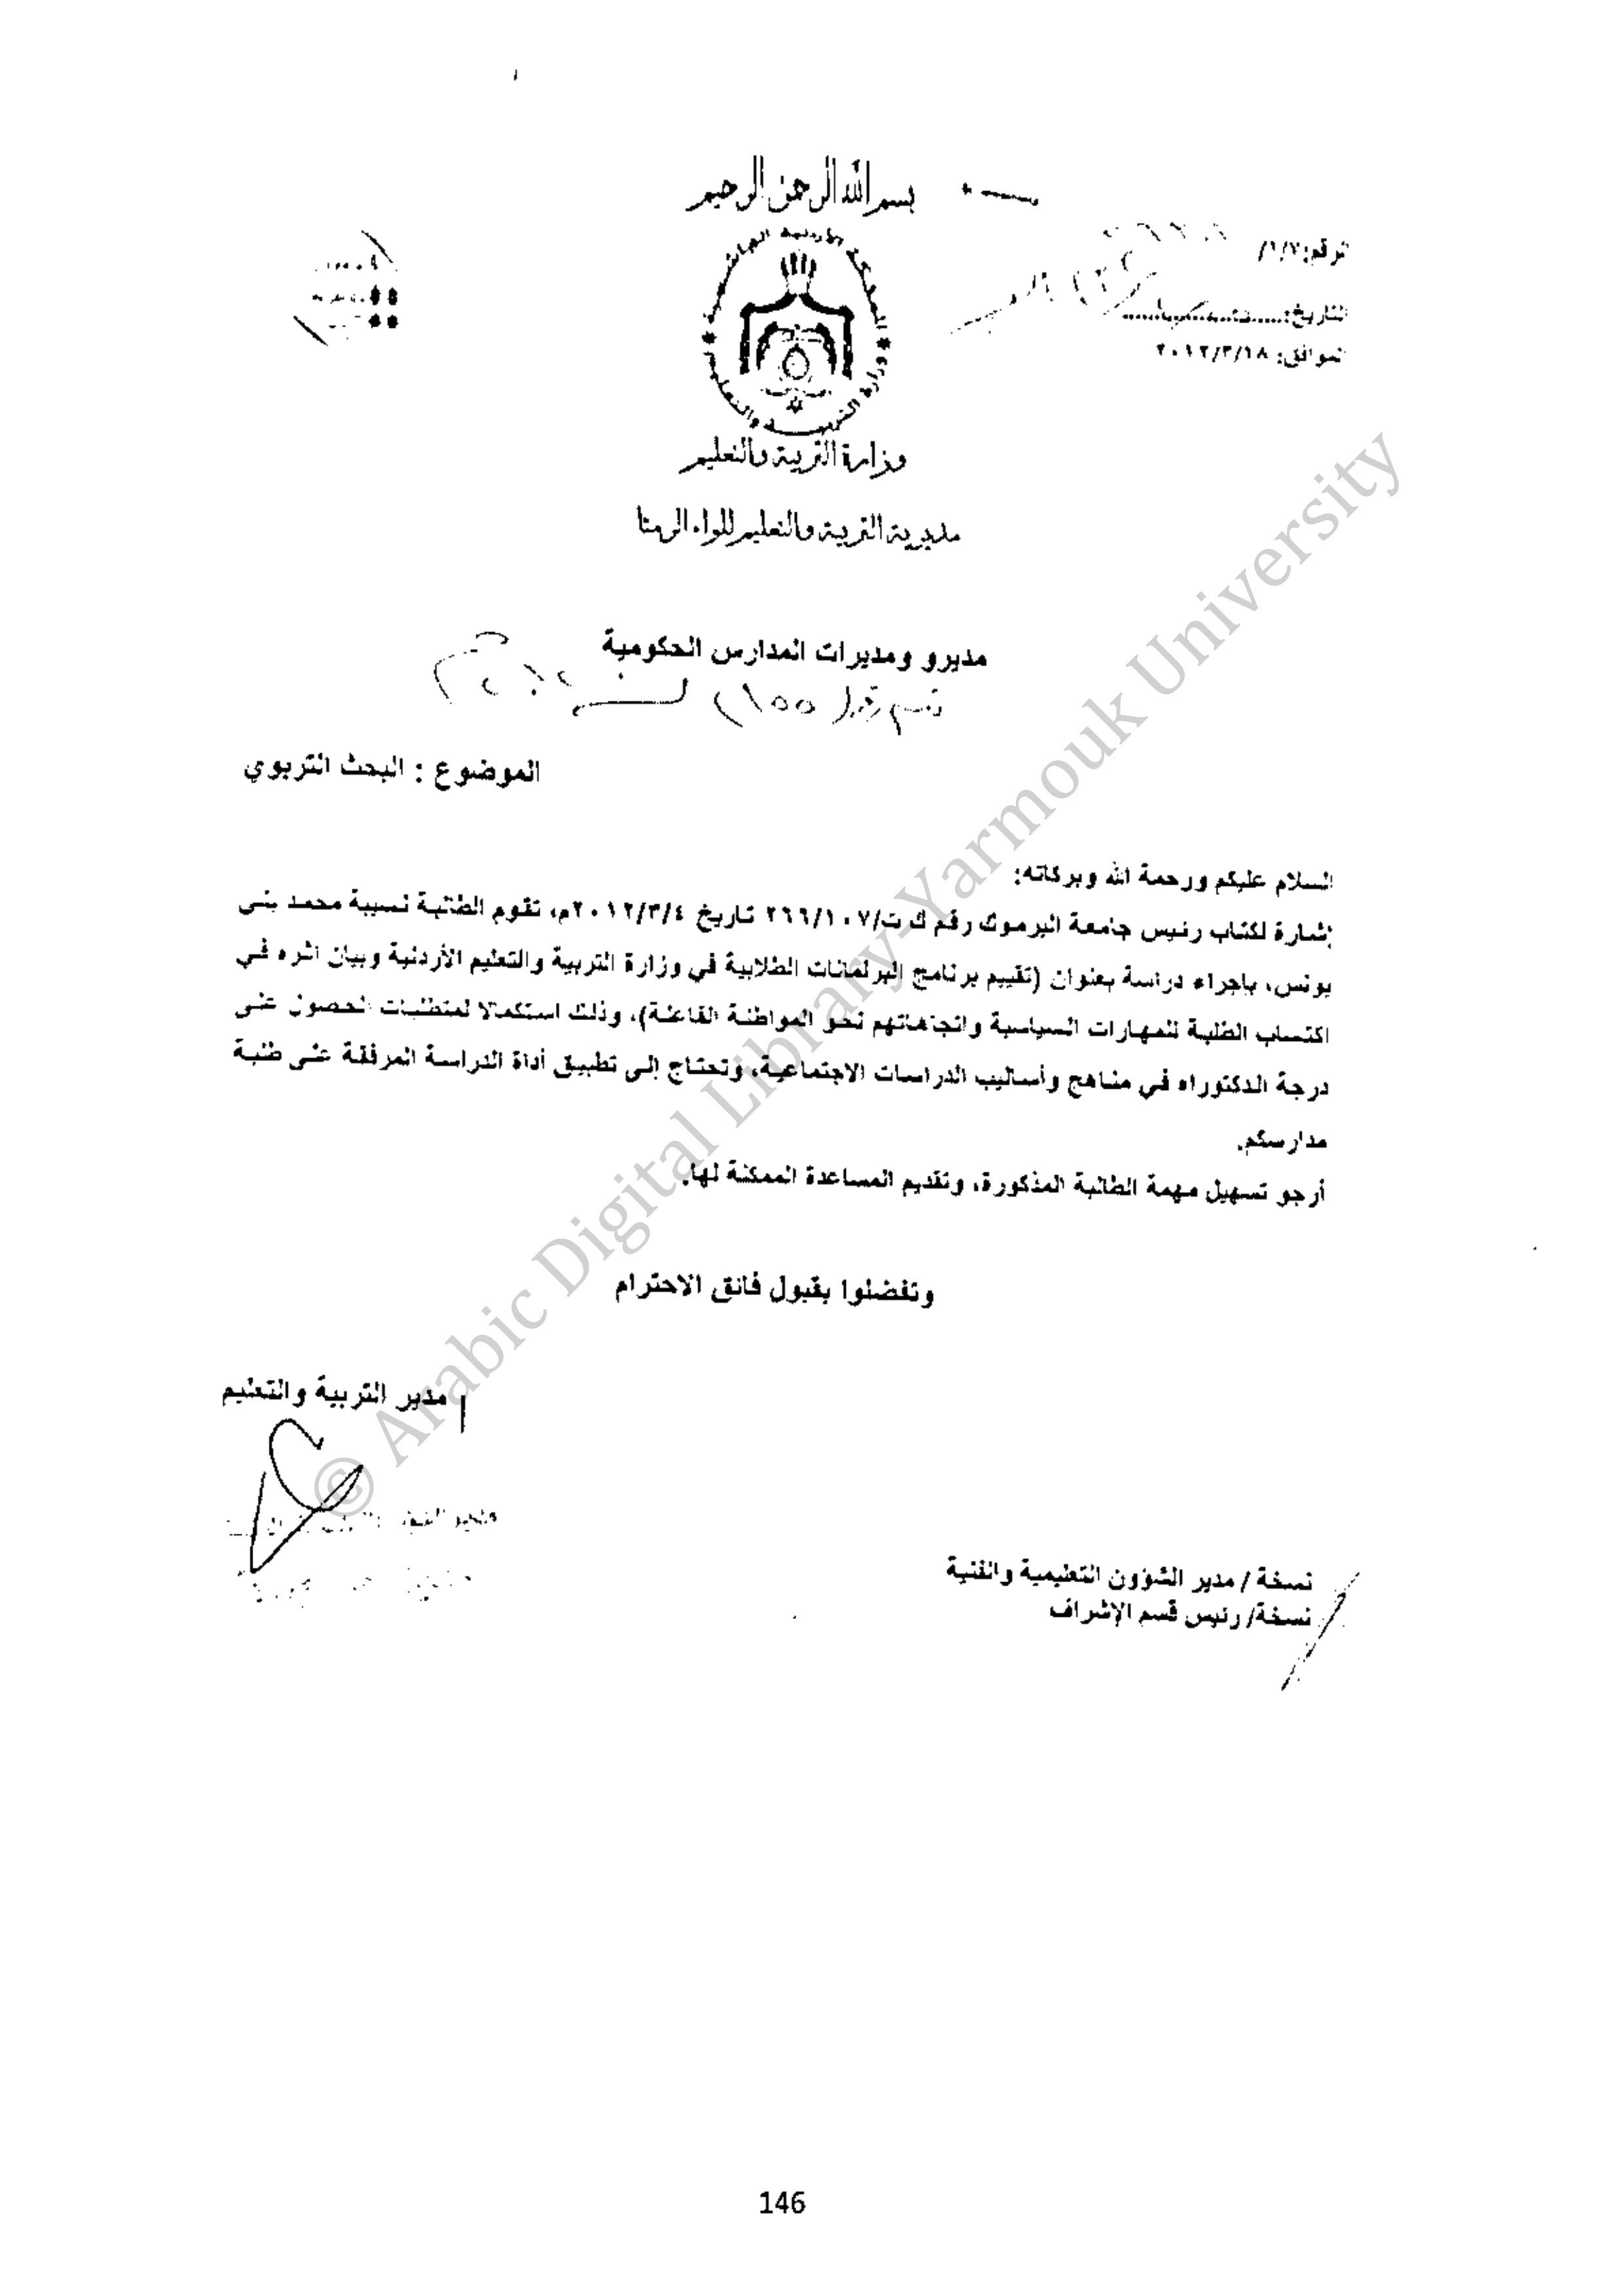 بسم الله الرحمن الرحيم
الرقم: ١/٧/
التاريخ:
الموافق: ٢٠١٢/٣/١٨
وزارة التربية والتعليم
وزارة التربية والتعليم
مديرية التربية والتعليم للواء الرمثا
مديرو ومديرات المدارس الحكومية
الموضوع : البحث التربوي
السلام عليكم ورحمة الله وبركاته:
إشارة لكتاب رئيس جامعة اليرموك رقم ك ت/٢٦٦/١٠٧ تاريخ ٢٠١٢/٣/٤م، تقوم الطالبة نسيبة محمد بني
يونس، بإجراء دراسة بعنوان (تقييم برنامج البرلمانات الطلابية في وزارة التربية والتعليم الأردنية وبيان اثره في
اكتساب الطلبة للمهارات السياسية واتجاهاتهم نحو المواطنة الفاعلة)، وذلك استكمالا لمتطلبات الحصول على
درجة الدكتوراه في مناهج وأساليب الدراسات الاجتماعية، وتحتاج إلى تطبيق أداة الدراسة المرفقة على طلبة
مدارسكم.
أرجو تسهيل مهمة الطالبة المذكورة، وتقديم المساعدة الممكنة لها.
وتفضلوا بقبول فائق الاحترام
مدير التربية والتعليم
نسخة / مدير الشؤون التعليمية والفنية
نسخة/ رئيس قسم الإشراف
© Arabic Digital Library-Yarmouk University
146